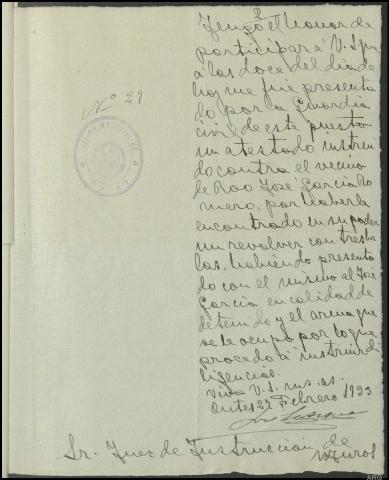 2
Tengo el honor de
participar á V.S. que
á las doce del dia de
hoy me fué presenta
do por la Guardia
civil de este puesto
un atestado instrui
do contra el vecino
de Roo José García Ro
mero, por haberle
encontrado en su poder
un revolver con tres ba
las, habiendo presenta
do con el mismo al José
García en calidad de
detenido y el arma que
se le ocupo por lo que
procedo á instruir di
ligencias.
Viva V.S. ms. as.
Outes 27 Febrero 1933
Nº 29
Sr. Juez de Instruccion de
Muros
ARG